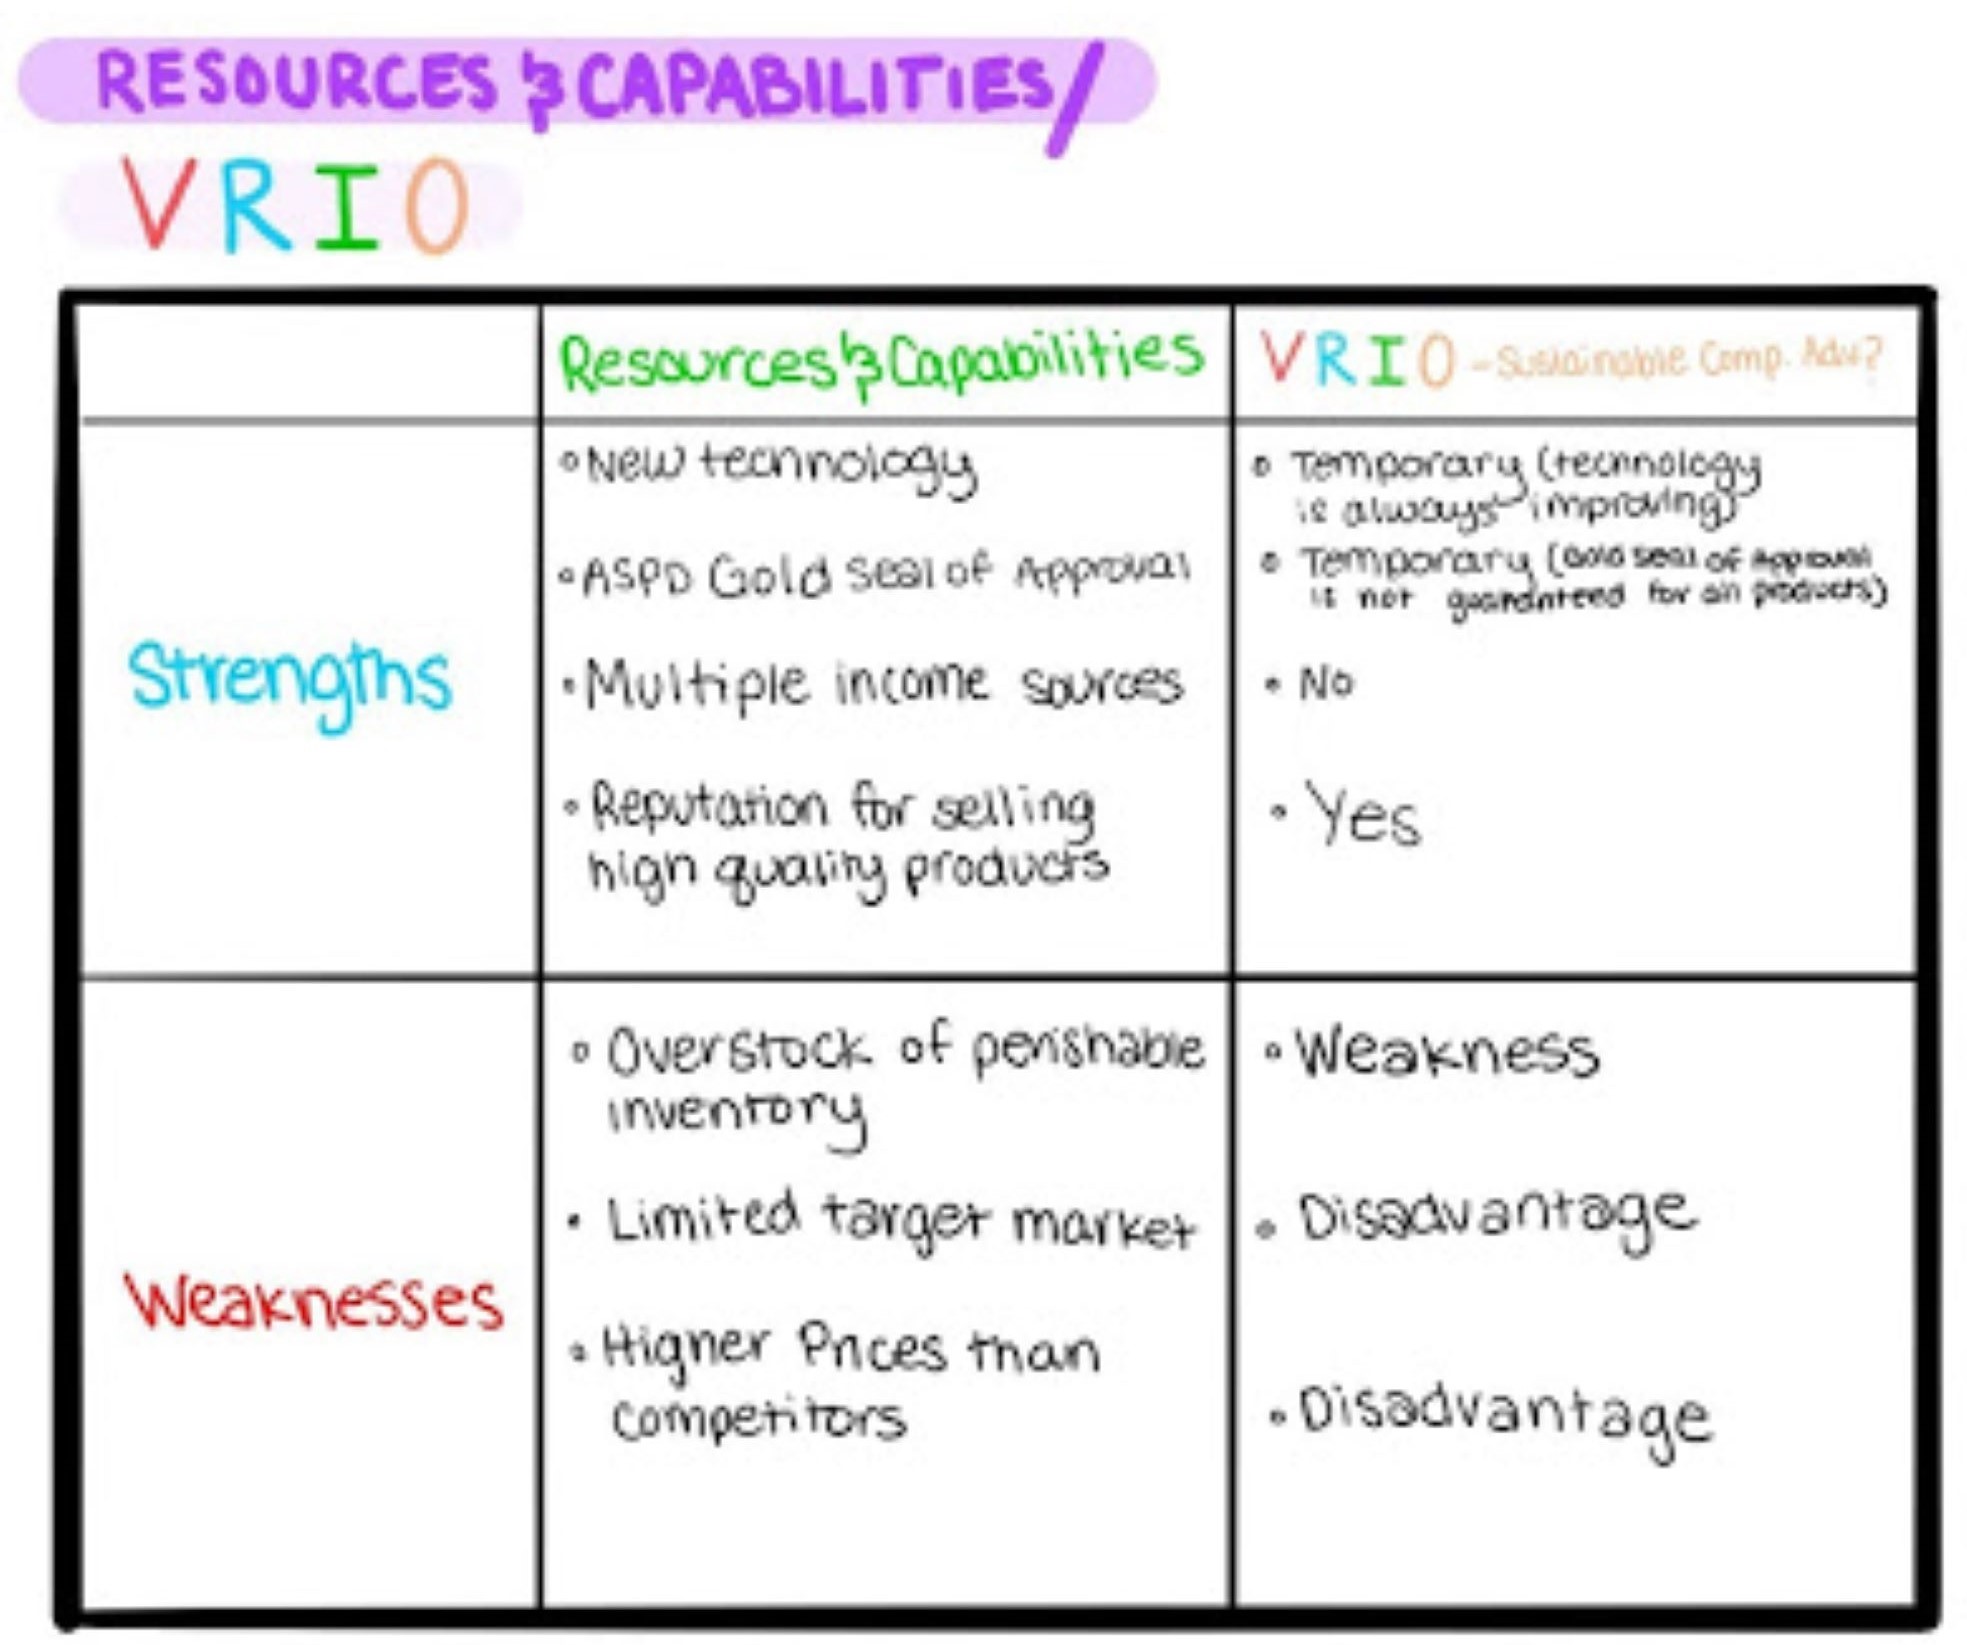 RESOURCES & CAPABILITIES/
VRIO
Resources & Capabilities
VRIO - Sustainable Comp. Adv?
Strengths
• New technology
• ASPD Gold seal of Approval
• Multiple income sources
• Reputation for selling
high quality products
• Temporary (technology
is always improving)
• Temporary (Gold seal of Approval
is not guaranteed for all products)
• No
• Yes
Weaknesses
• Overstock of perishable
inventory
• Limited target market
• Higher Prices than
competitors
• Weakness
• Disadvantage
• Disadvantage